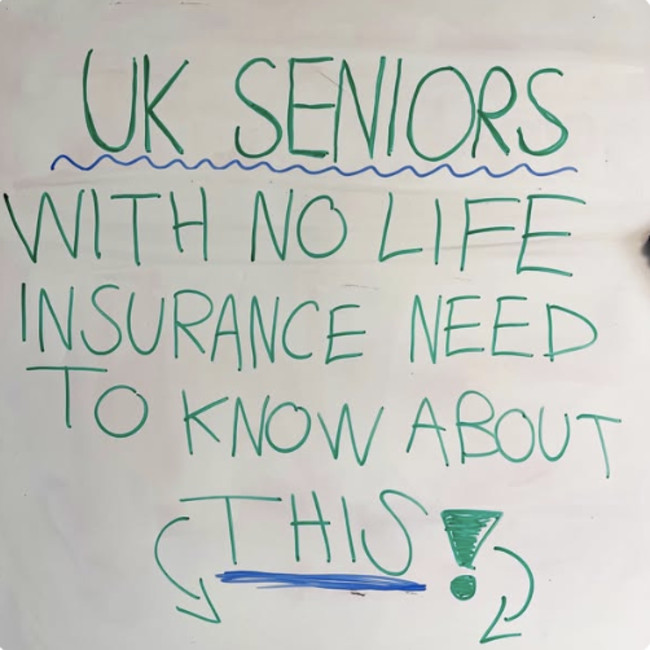 UK SENIORS
WITH NO LIFE
INSURANCE NEED
TO KNOW ABOUT
THIS!